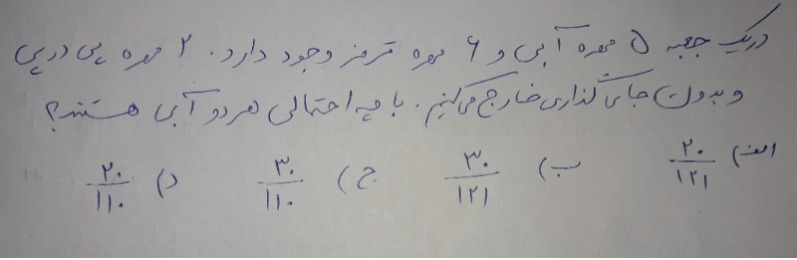 در یک جعبه ۵ مهره آبی و ۶ مهره قرمز وجود دارد. ۲ مهره پی در پی
و بدون جای گذاری خارج می‌کنیم. با چه احتمالی هر دو آبی هستند؟
الف) ۲۰/۱۲۱ ب) ۳۰/۱۲۱ ج) ۳۰/۱۱۰ د) ۲۰/۱۱۰